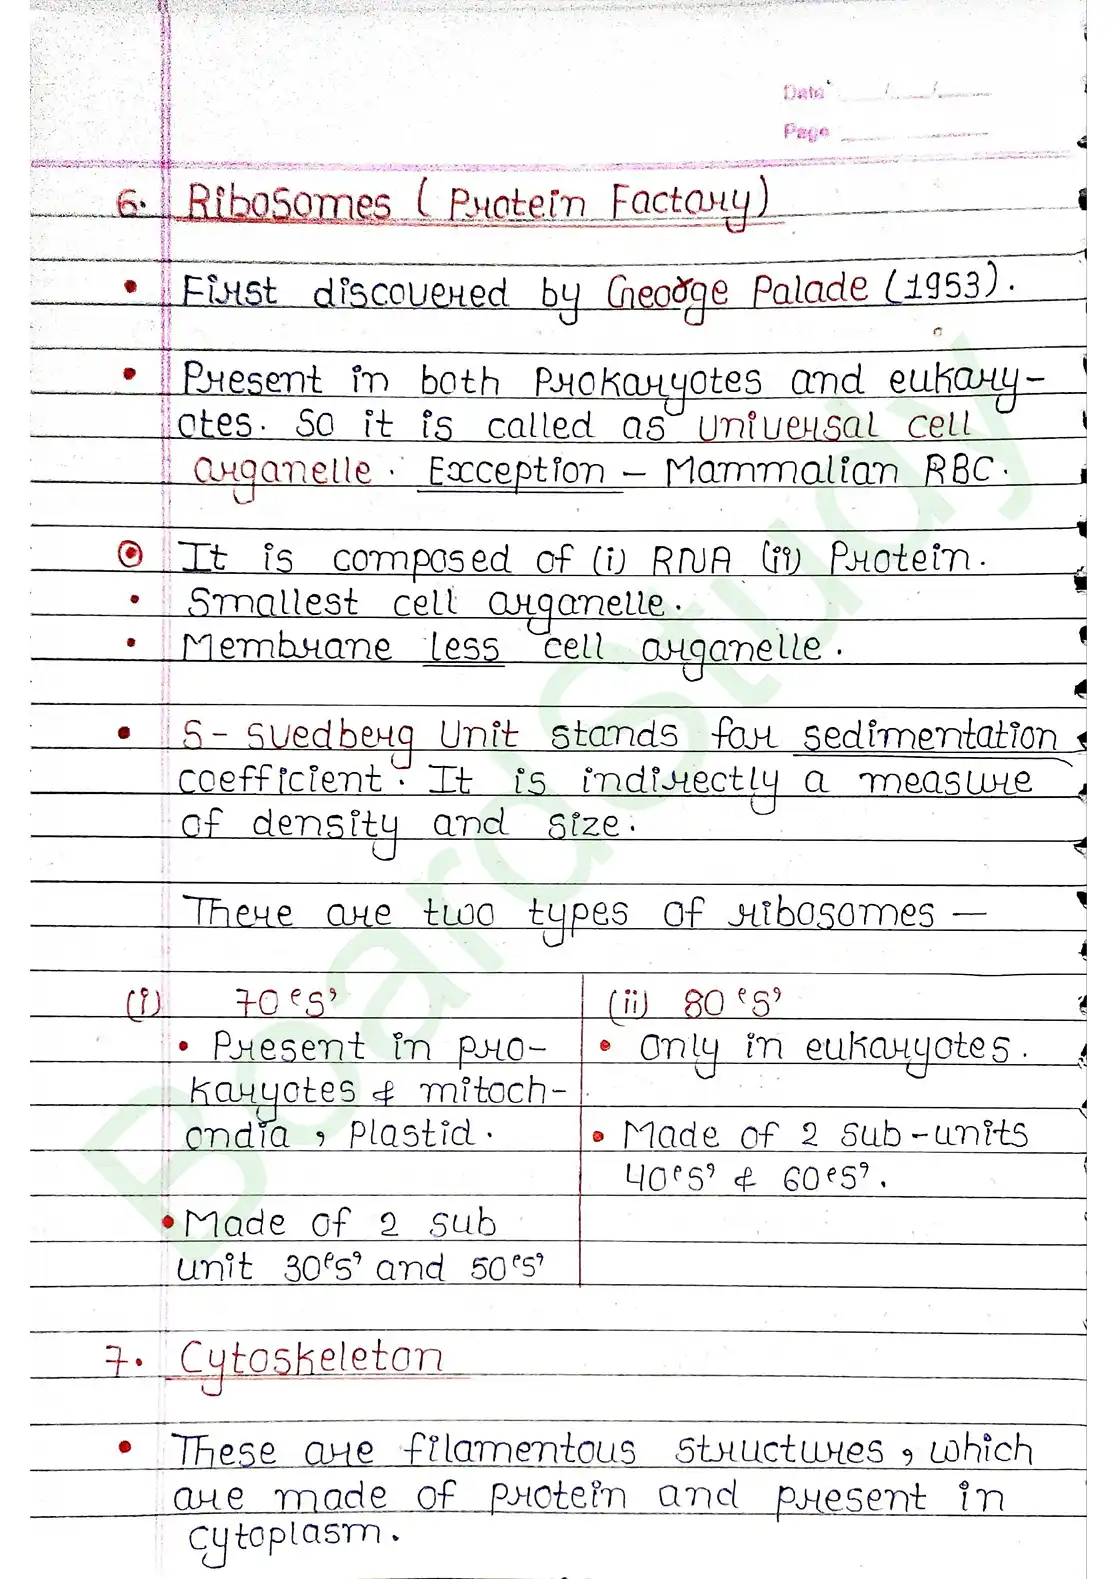 Date __/__/__
Page ______
6. Ribosomes (Protein Factory)
• First discovered by George Palade (1953).
• Present in both Prokaryotes and eukary-
otes. So it is called as universal cell
organelle. Exception – Mammalian RBC.
⊙ It is composed of (i) RNA (ii) Protein.
• Smallest cell organelle.
• Membrane less cell organelle.
• S- svedberg Unit stands for sedimentation
coefficient. It is indirectly a measure
of density and size.
There are two types of ribosomes —
(i) 70 'S'
• Present in pro-
karyotes & mitoch-
ondia, Plastid.
• Made of 2 sub
unit 30'S' and 50'S'
(ii) 80 'S'
• Only in eukaryotes.
• Made of 2 sub-units
40'S' & 60'S'.
7. Cytoskeleton
• These are filamentous structures, which
are made of protein and present in
cytoplasm.
BoardStudy